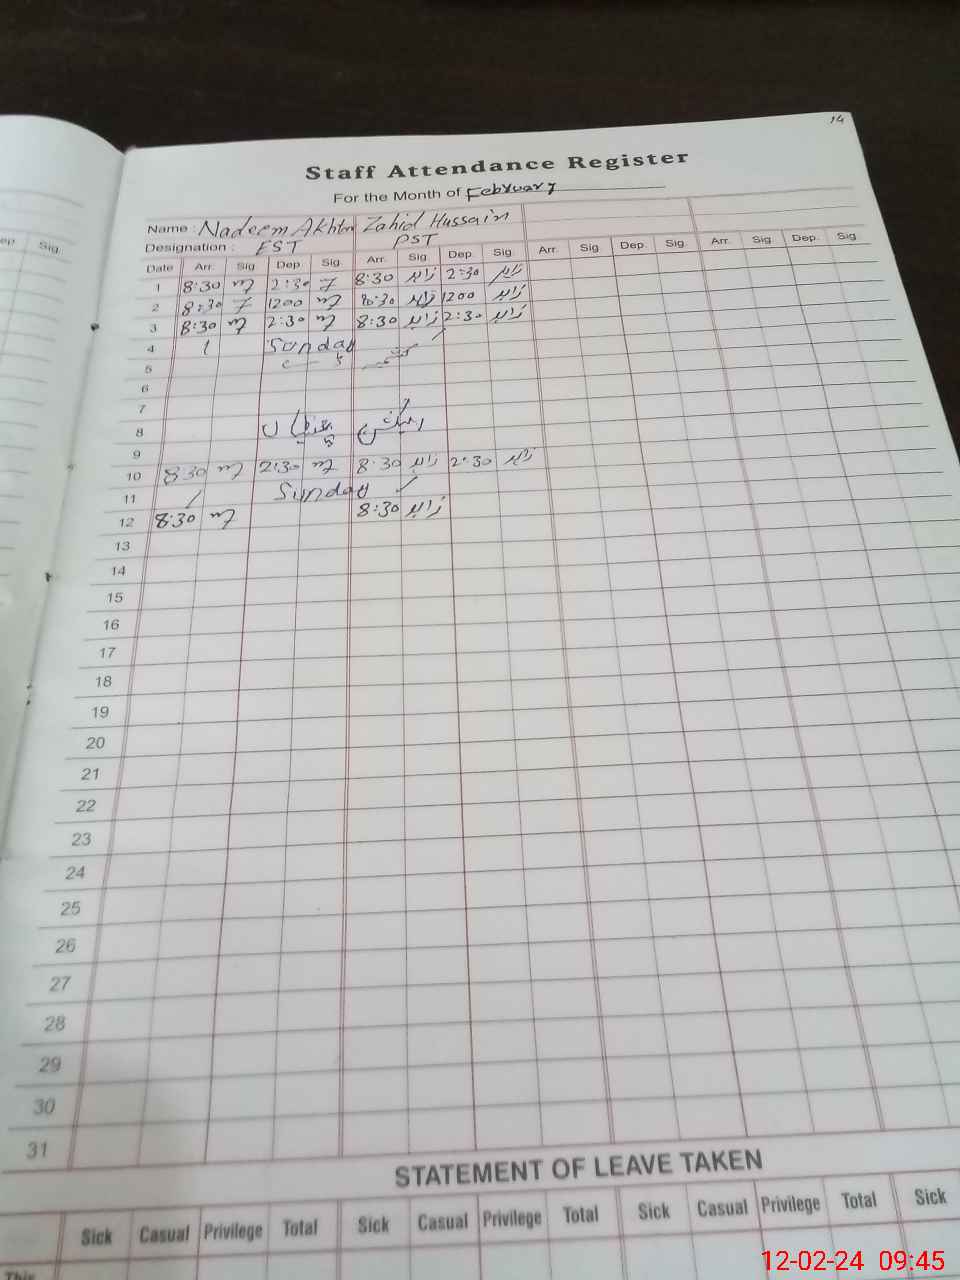 14
Staff Attendance Register
For the Month of February
Name : Nadeem Akhtar Zahid Hussain
Designation : EST PST
Date Arr. Sig Dep. Sig. Arr. Sig. Dep. Sig. Arr. Sig. Dep. Sig. Arr. Sig. Dep. Sig.
ep. Sig.
1 8:30 2:30 8:30 زاہد 2:30 زاہد
2 8:30 1200 8:30 زاہد 1200 زاہد
3 8:30 2:30 8:30 زاہد 2:30 زاہد
4 Sunday
5 کشمیر
6
7
8 الیکشن
9
10 8:30 2:30 8:30 زاہد 2:30 زاہد
11 Sunday
12 8:30 8:30 زاہد
13
14
15
16
17
18
19
20
21
22
23
24
25
26
27
28
29
30
31
STATEMENT OF LEAVE TAKEN
Sick Casual Privilege Total Sick Casual Privilege Total Sick Casual Privilege Total Sick
This
12-02-24 09:45